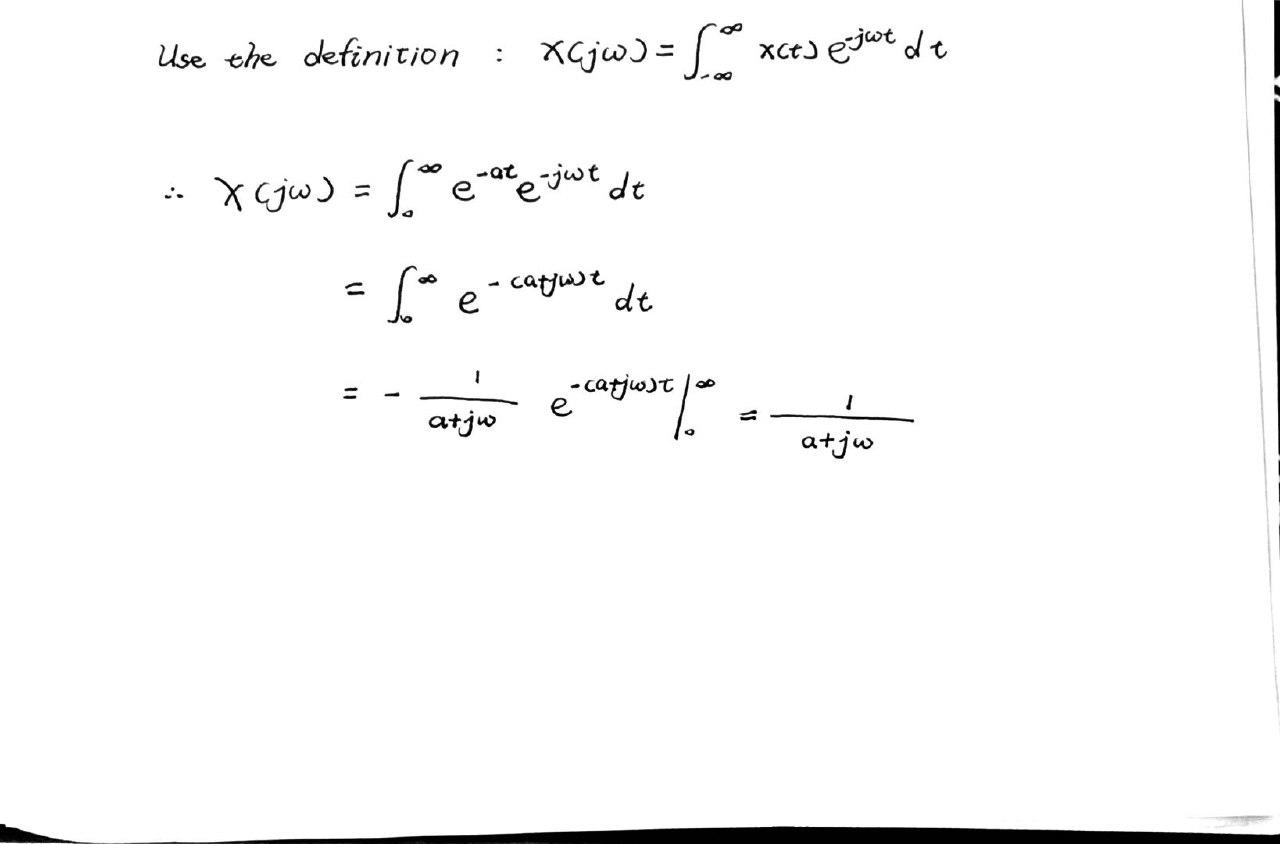 Use the definition : X(jω) = ∫_{-∞}^{∞} x(t) e^{-jωt} dt
∴ X(jω) = ∫_0^∞ e^{-at} e^{-jωt} dt
= ∫_0^∞ e^{-(a+jω)t} dt
= - 1/(a+jω) e^{-(a+jω)t} |_0^∞ = 1/(a+jω)